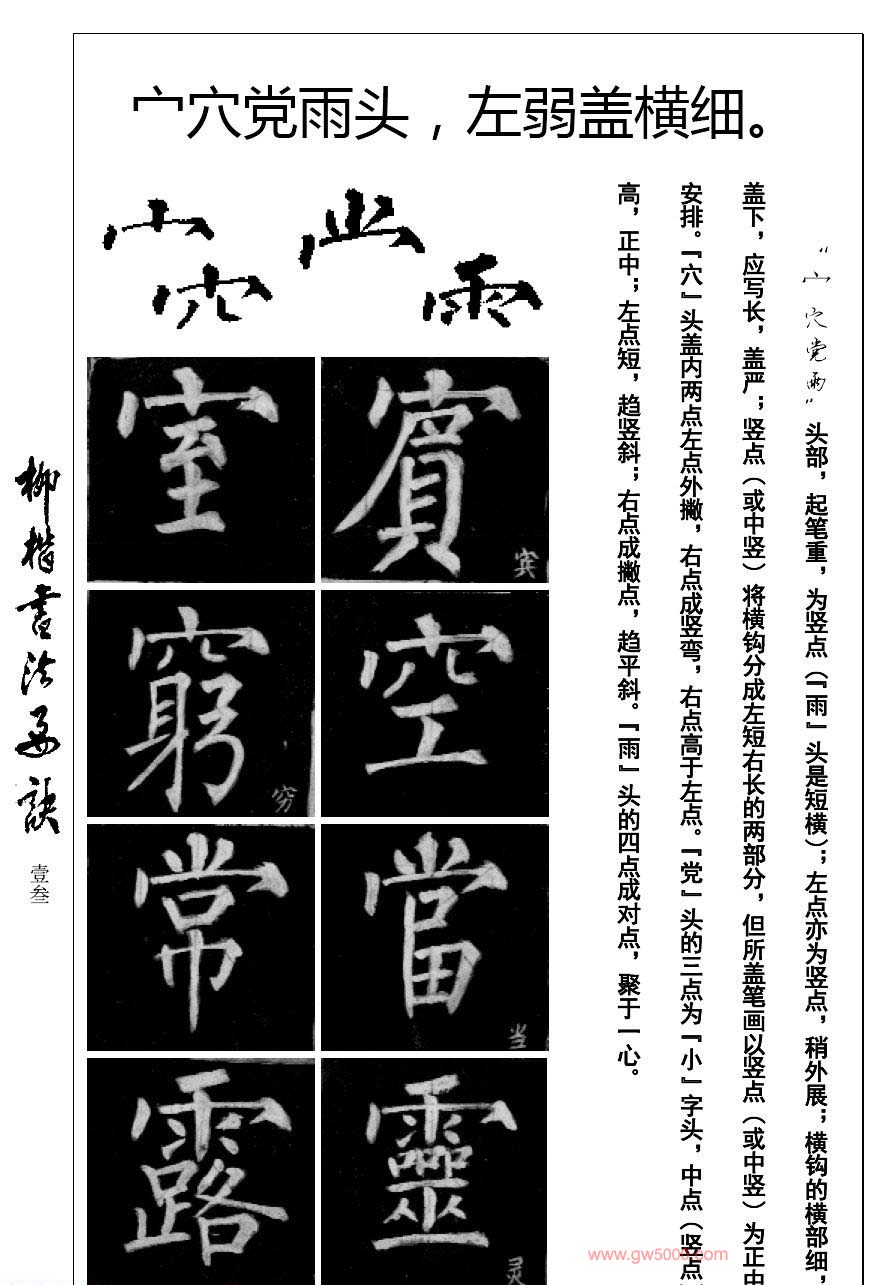 宀穴党雨头，左弱盖横细。
“宀穴党雨”头部，起笔重，为竖点（『雨』头是短横）；左点亦为竖点，稍外展；横钩的横部细，
盖下，应写长，盖严；竖点（或中竖）将横钩分成左短右长的两部分，但所盖笔画以竖点（或中竖）为正中
安排。『穴』头盖内两点左点外撇，右点成竖弯，右点高于左点。『党』头的三点为『小』字头，中点（竖点
高，正中；左点短，趋竖斜；右点成撇点，趋平斜。『雨』头的四点成对点，聚于一心。
宀
穴
雨
室
賓
宾
窮
穷
空
常
當
当
露
靈
灵
柳楷書法要訣
壹叁